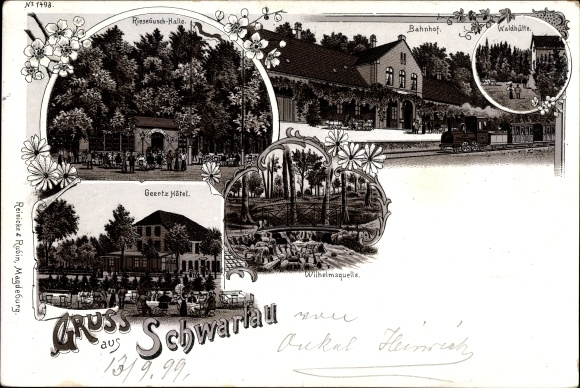 No 1498.
Riesebusch-Halle.
Bahnhof.
Waldhütte.
Geertz Hôtel.
Wilhelmsquelle.
Reinicke & Rubin, Magdeburg.
Gruss
aus
Schwartau
von
Onkel Heinrich
13/9.99.